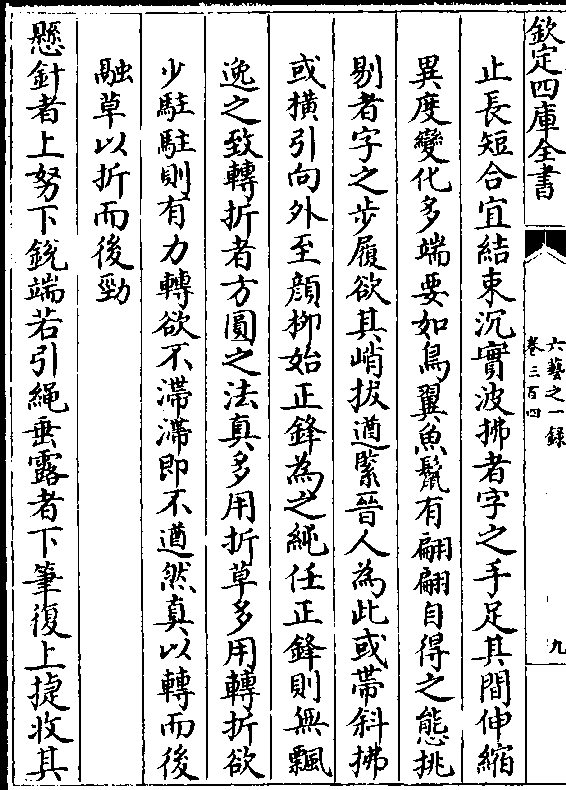 欽定四庫全書
六藝之一録
卷三百四
九
止長短合宜結束沉實波拂者字之手足其間伸縮
異度變化多端要如鳥翼魚鬛有翩翩自得之態挑
剔者字之步履欲其峭拔遒緊晉人為此或帶斜拂
或横引向外至顔柳始正鋒為之純任正鋒則無飄
逸之致轉折者方圓之法真多用折草多用轉折欲
少駐駐則有力轉欲不滯滯即不遒然真以轉而後
融草以折而後勁
懸針者上努下鋭端若引繩垂露者下筆復上捷收其